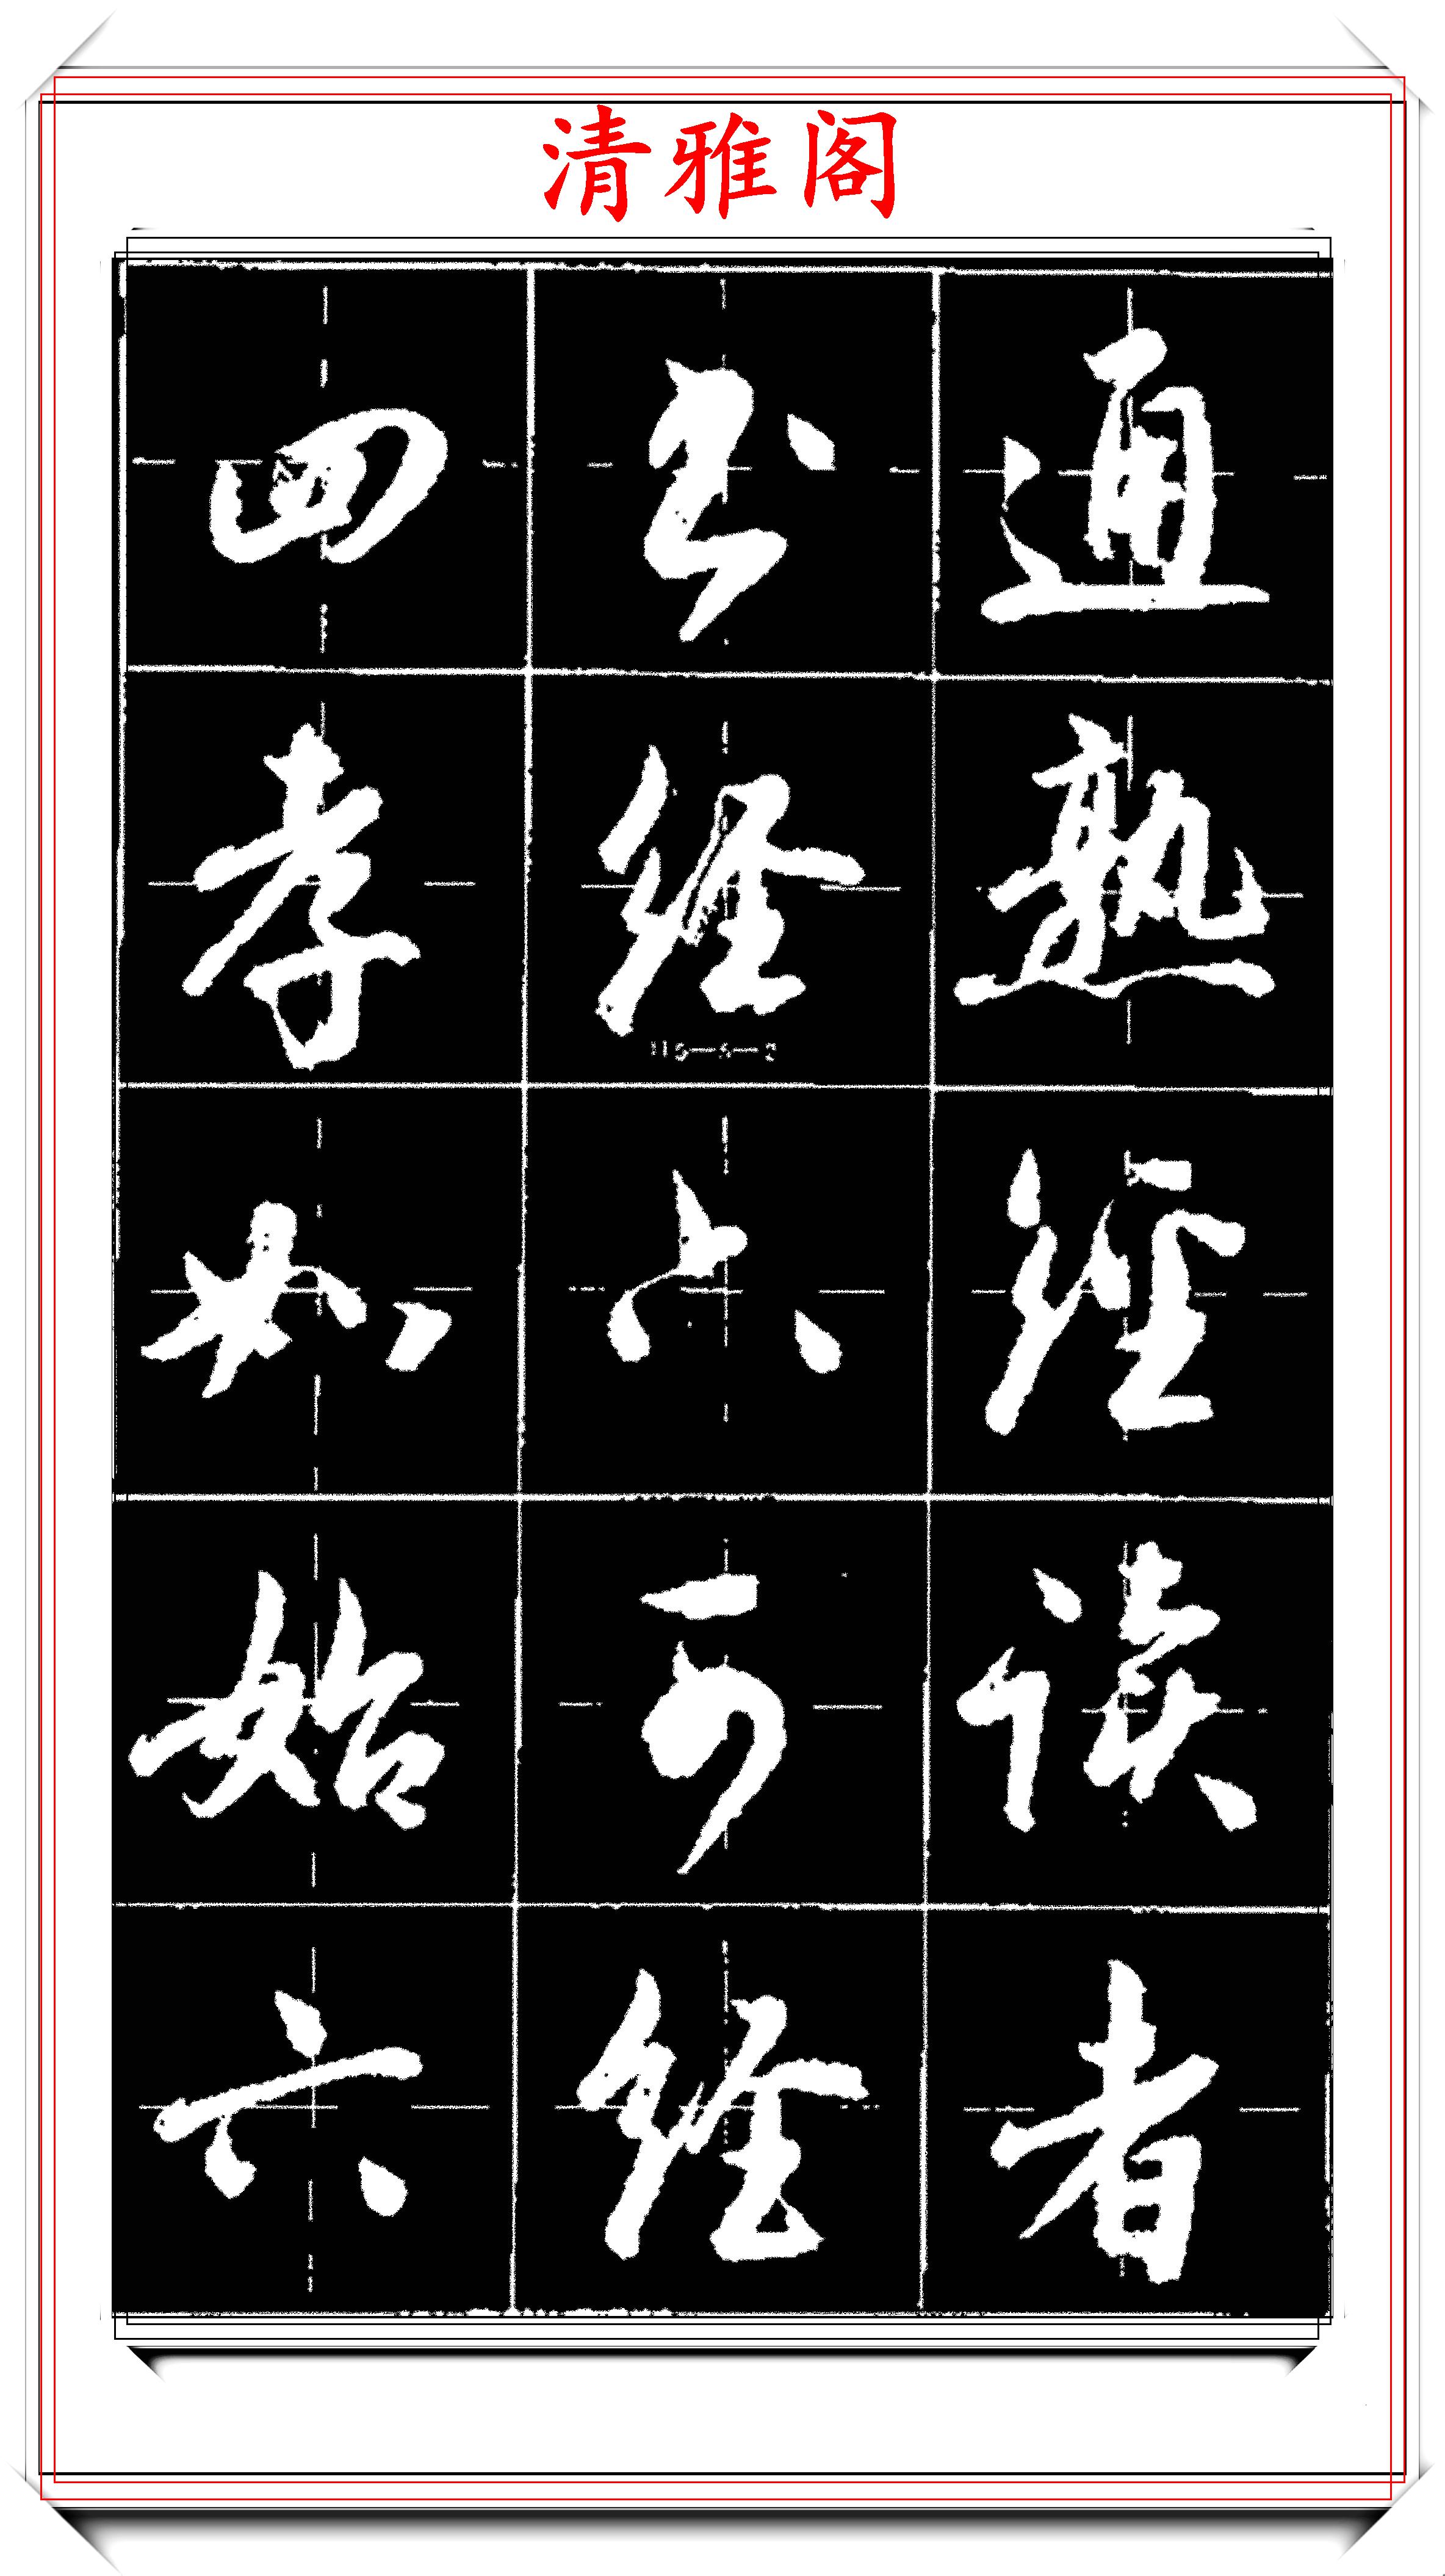 清雅阁
四书通
孝经熟
如六经
始可读
六经者